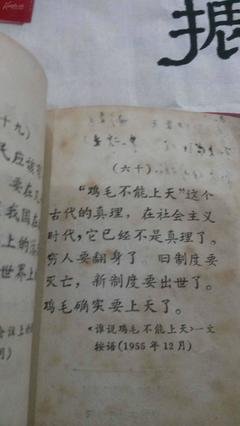 十九)
民应该
要在
我国在
上的
世界上
(六十)
“鸡毛不能上天”这个
古代的真理，在社会主义
时代，它已经不是真理了。
穷人要翻身了 旧制度要
灭亡，新制度要出世了。
鸡毛确实要上天了。
《谁说鸡毛不能上天》一文
按语(1955年12月)